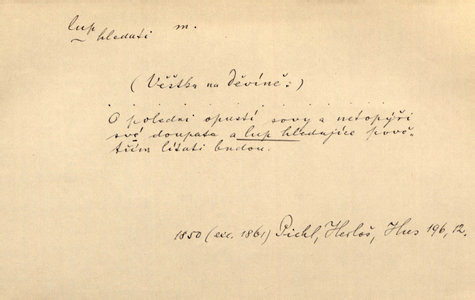 lup m.
hledati
(Věštka na Děvíně:)
. . . . . . . . . . . . . . . . . .
O poledni opustí sovy a netopýři
své doupata a lup hledajíce pově-
třím lítati budou.
1850 (exc. 1861) Pichl, Herloš, Hus 196, 12.